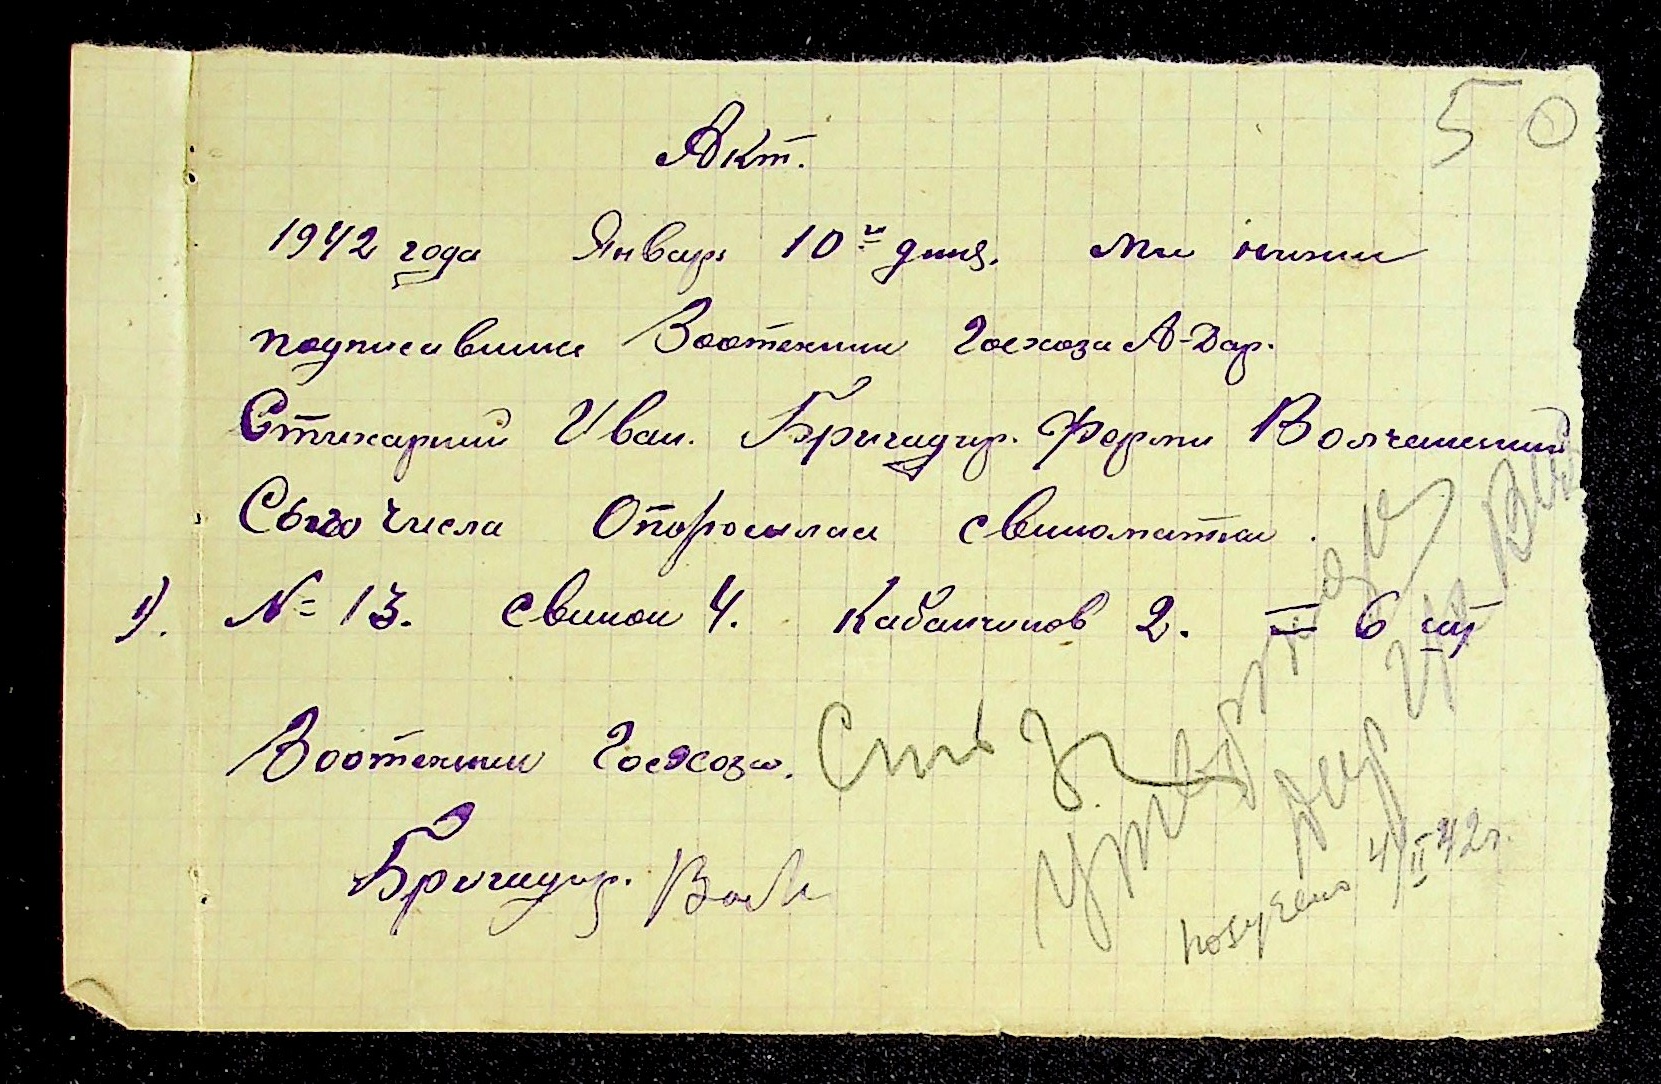 50
Акт.
1942 года Январь 10го дня. Ми нижи
подписавшие Зоотехник Госхоза А-Дар.
Стихарний Иван. Бригадир. Ферми Волчанский
Сого числа Опоросилас свиноматки.
1). № 13. Свинок 4. Кабанчиков 2. = 6 шт
Зоотехник Госхоза.
Бригадир.
Утверждаю
Дир
получено 4/II 42г.